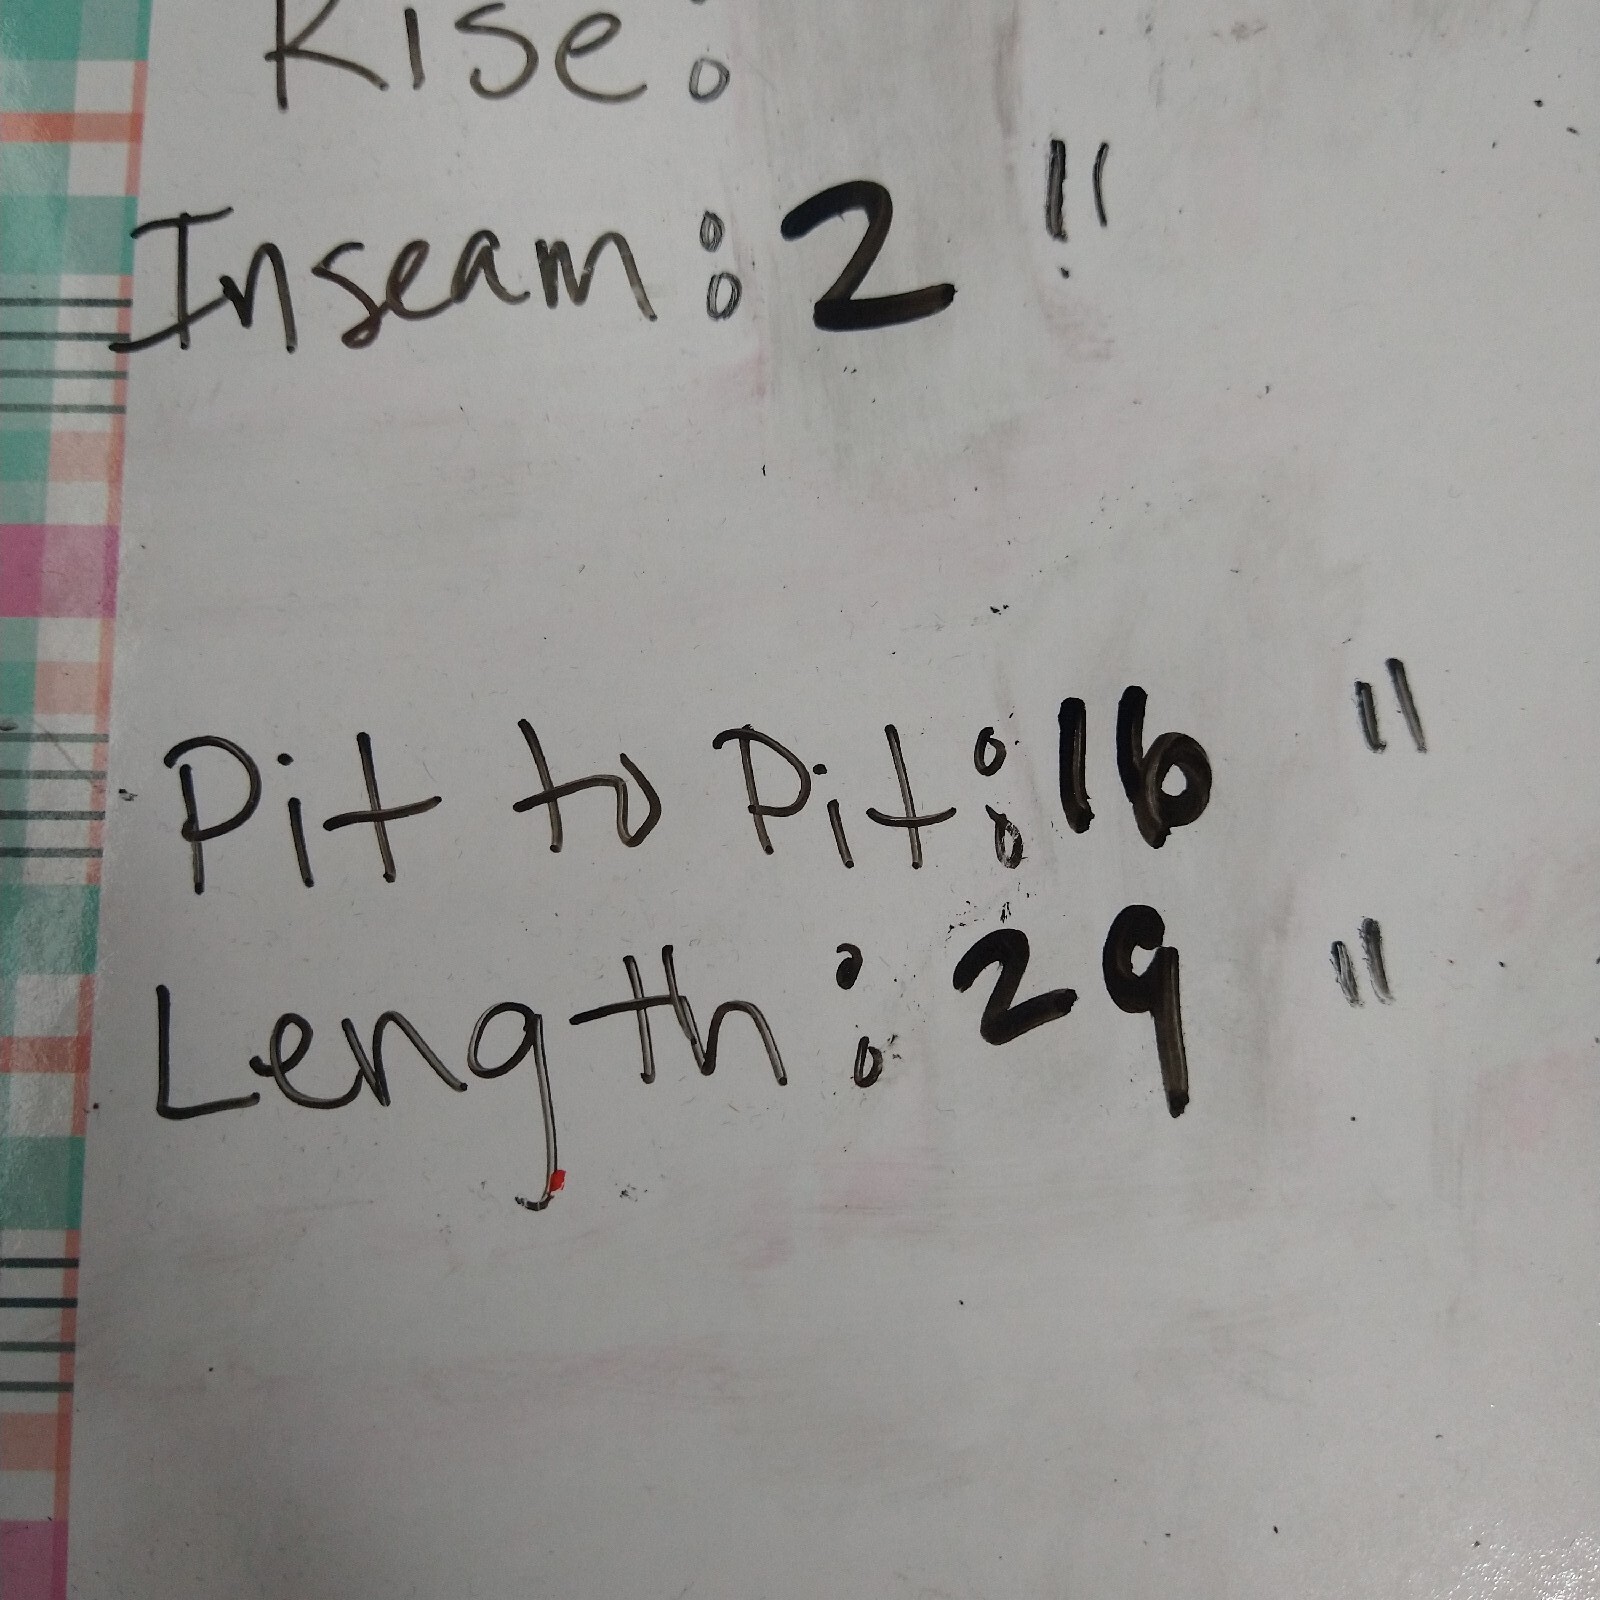 Rise:
Inseam: 2 "
Pit to Pit: 16 "
Length: 29 "